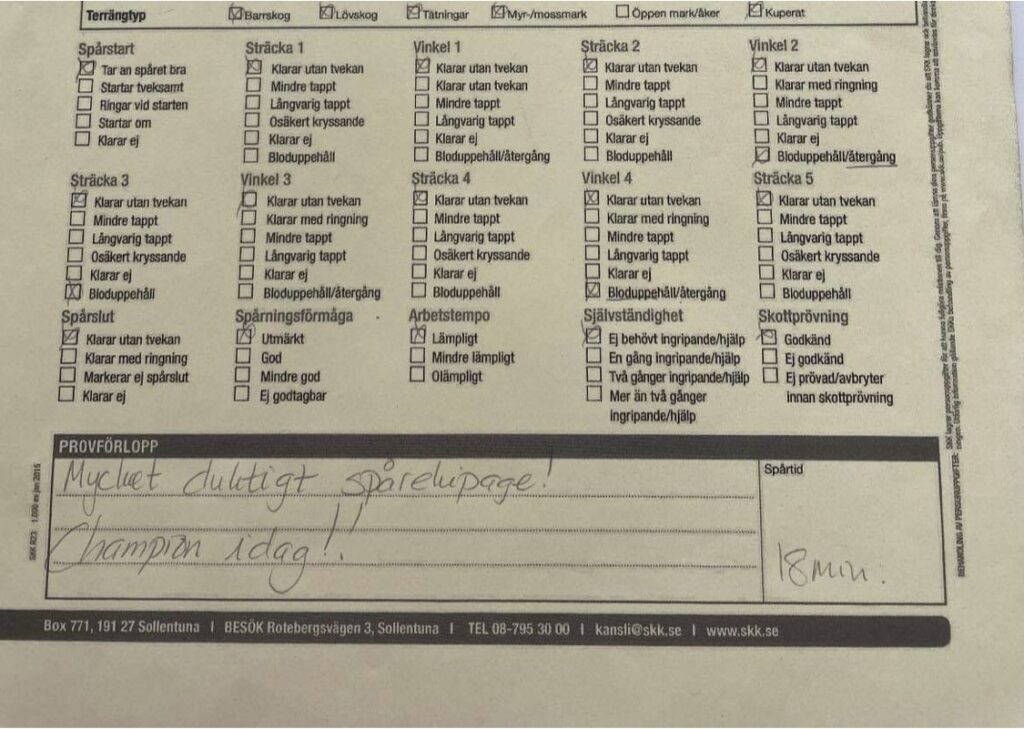 Terrängtyp ☒ Barrskog ☒ Lövskog ☒ Tätningar ☒ Myr-/mossmark ☐ Öppen mark/åker ☒ Kuperat
Spårstart
☒ Tar an spåret bra
☐ Startar tveksamt
☐ Ringar vid starten
☐ Startar om
☐ Klarar ej
Sträcka 1
☒ Klarar utan tvekan
☐ Mindre tappt
☐ Långvarig tappt
☐ Osäkert kryssande
☐ Klarar ej
☐ Bloduppehåll
Vinkel 1
☒ Klarar utan tvekan
☐ Klarar utan tvekan
☐ Mindre tappt
☐ Långvarig tappt
☐ Klarar ej
☐ Bloduppehåll/återgång
Sträcka 2
☒ Klarar utan tvekan
☐ Mindre tappt
☐ Långvarig tappt
☐ Osäkert kryssande
☐ Klarar ej
☐ Bloduppehåll
Vinkel 2
☒ Klarar utan tvekan
☐ Klarar med ringning
☐ Mindre tappt
☐ Långvarig tappt
☐ Klarar ej
☒ Bloduppehåll/återgång
Sträcka 3
☒ Klarar utan tvekan
☐ Mindre tappt
☐ Långvarig tappt
☐ Osäkert kryssande
☐ Klarar ej
☒ Bloduppehåll
Vinkel 3
☐ Klarar utan tvekan
☐ Klarar med ringning
☐ Mindre tappt
☐ Långvarig tappt
☐ Klarar ej
☐ Bloduppehåll/återgång
Sträcka 4
☒ Klarar utan tvekan
☐ Mindre tappt
☐ Långvarig tappt
☐ Osäkert kryssande
☐ Klarar ej
☐ Bloduppehåll
Vinkel 4
☒ Klarar utan tvekan
☐ Klarar med ringning
☐ Mindre tappt
☐ Långvarig tappt
☐ Klarar ej
☒ Bloduppehåll/återgång
Sträcka 5
☒ Klarar utan tvekan
☐ Mindre tappt
☐ Långvarig tappt
☐ Osäkert kryssande
☐ Klarar ej
☐ Bloduppehåll
Spårslut
☒ Klarar utan tvekan
☐ Klarar med ringning
☐ Markerar ej spårslut
☐ Klarar ej
Spårningsförmåga
☒ Utmärkt
☐ God
☐ Mindre god
☐ Ej godtagbar
Arbetstempo
☒ Lämpligt
☐ Mindre lämpligt
☐ Olämpligt
Självständighet
☒ Ej behövt ingripande/hjälp
☐ En gång ingripande/hjälp
☐ Två gånger ingripande/hjälp
☐ Mer än två gånger
ingripande/hjälp
Skottprövning
☒ Godkänd
☐ Ej godkänd
☐ Ej prövad/avbryter
innan skottprövning
PROVFÖRLOPP
Mycket duktigt spårekipage!
Champion idag!!
Spårtid
18 min.
SKK R23 1.000 ex jan 2015
BEHANDLING AV PERSONUPPGIFTER:
Box 771, 191 27 Sollentuna | BESÖK Rotebergsvägen 3, Sollentuna | TEL 08-795 30 00 | kansli@skk.se | www.skk.se